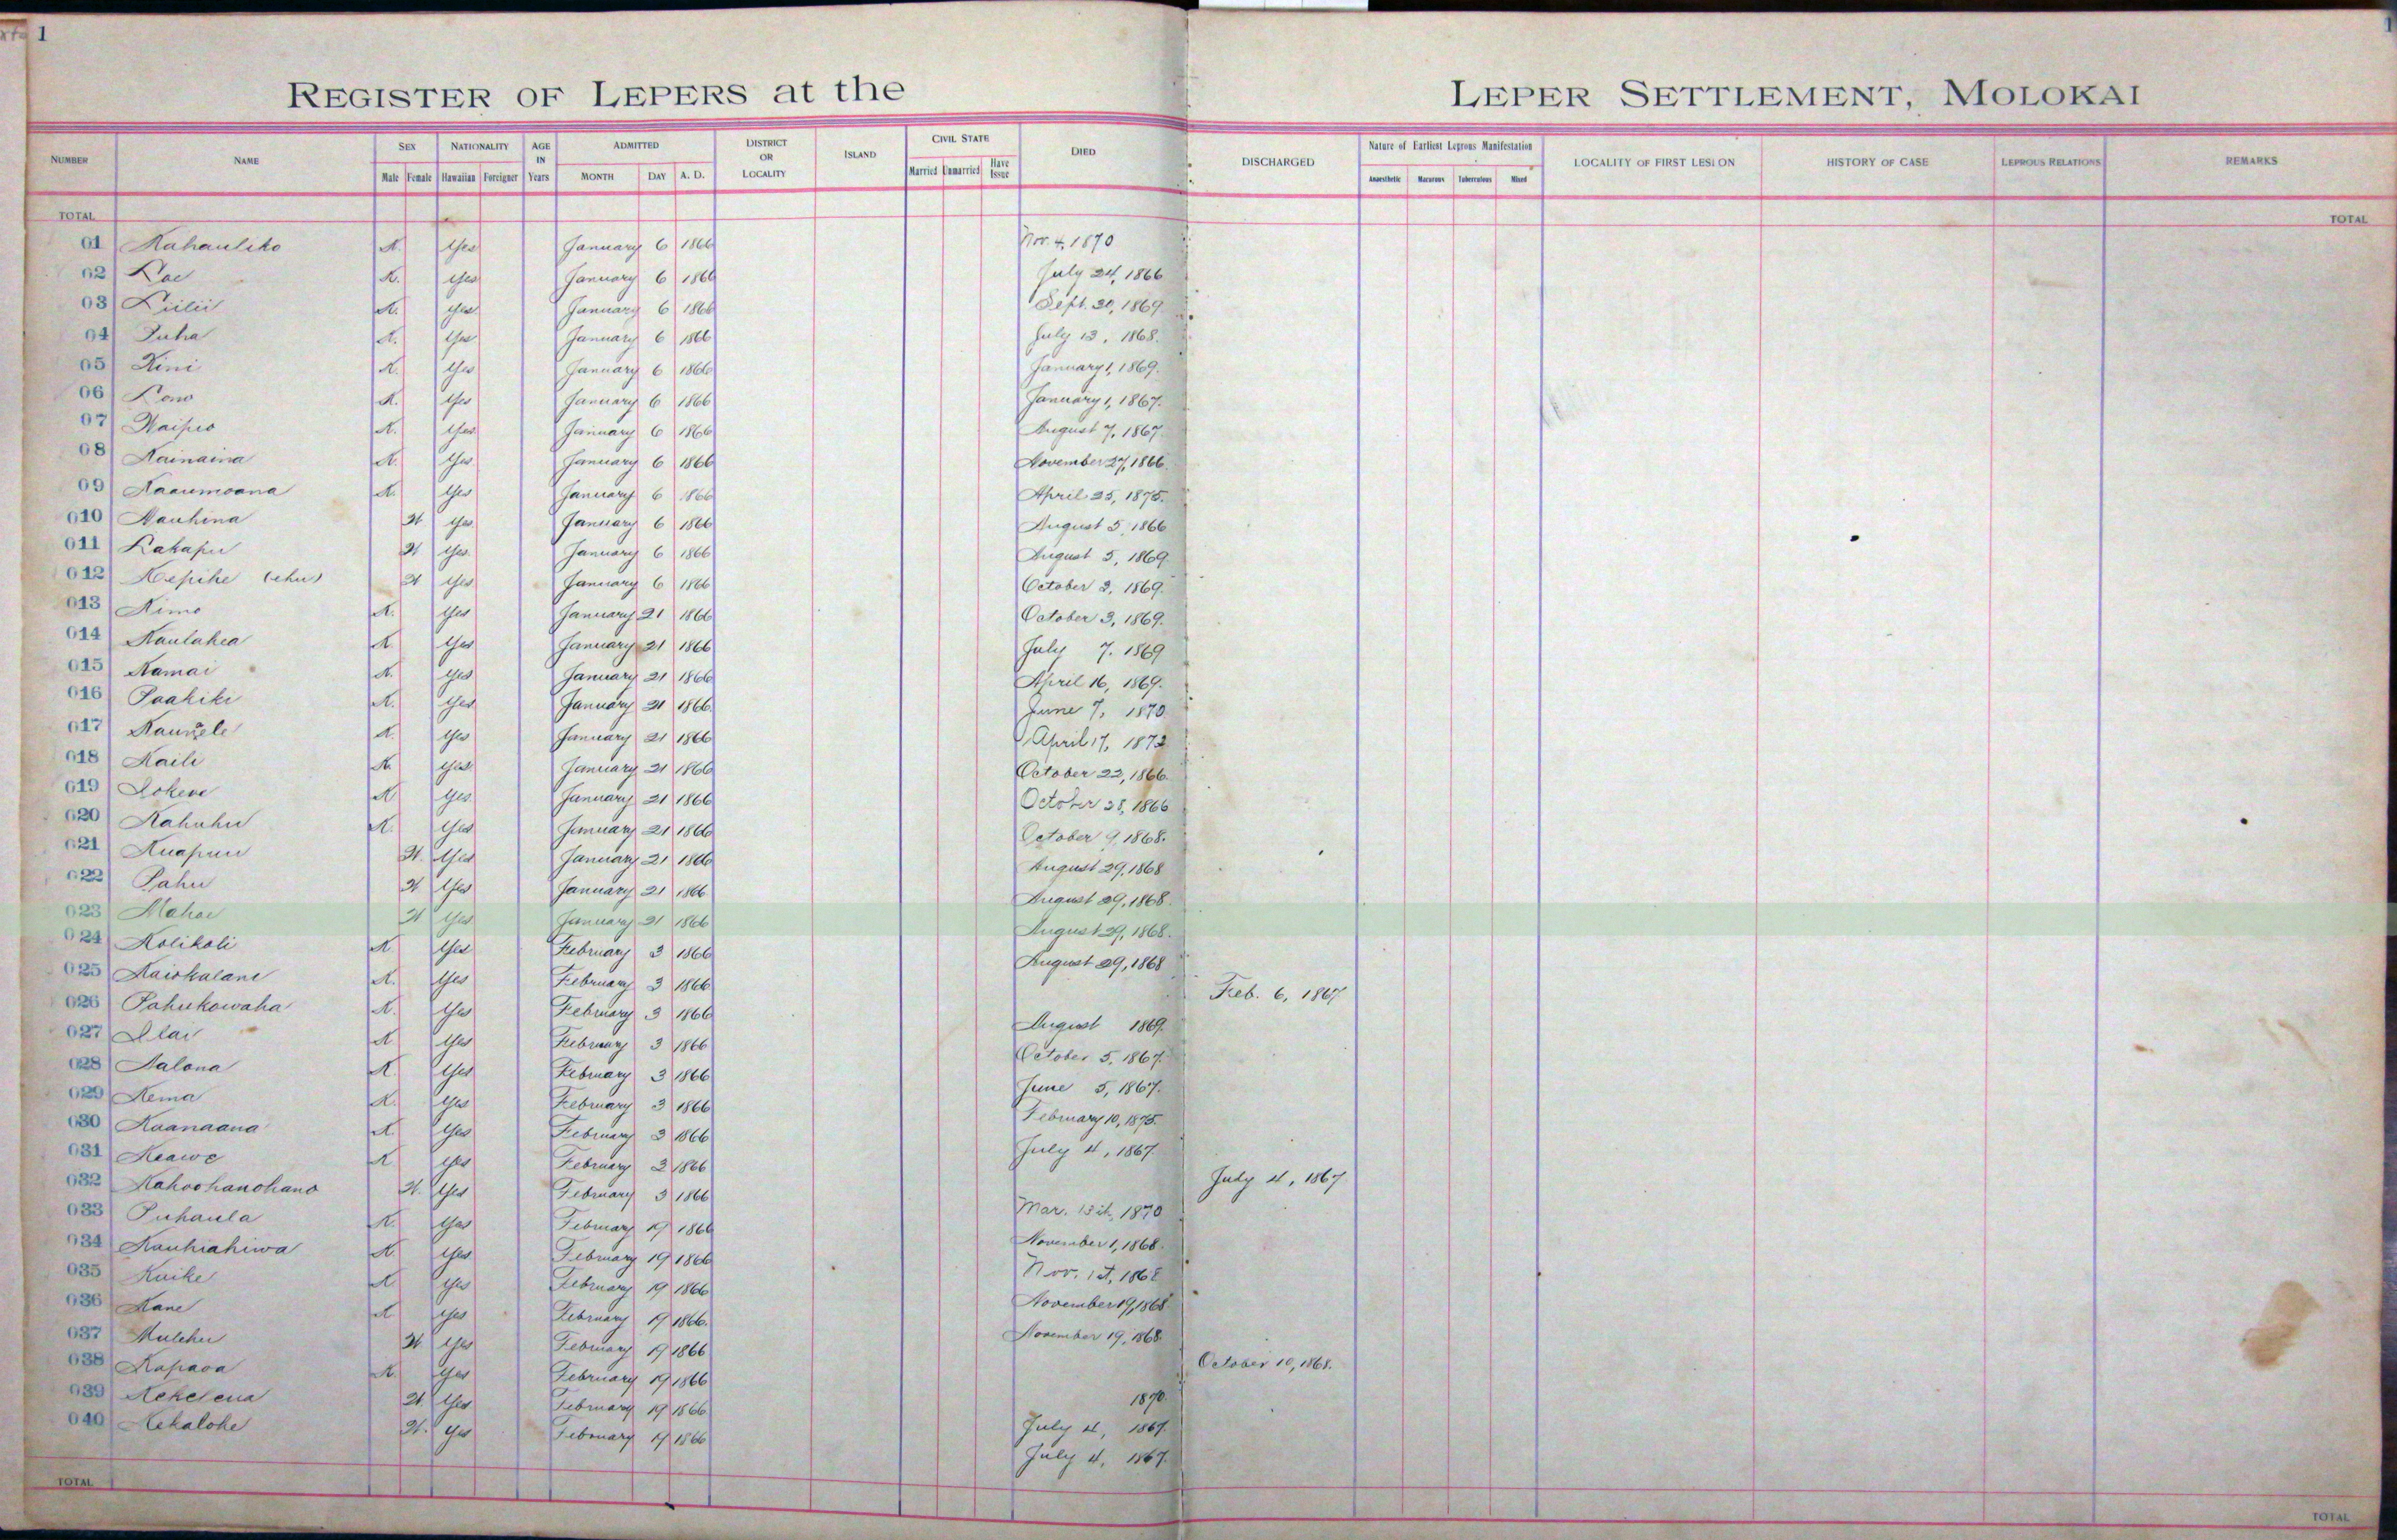 1
1
REGISTER OF LEPERS at the LEPER SETTLEMENT, MOLOKAI
NUMBER NAME SEX NATIONALITY AGE IN Years ADMITTED DISTRICT OR LOCALITY ISLAND CIVIL STATE DIED DISCHARGED Nature of Earliest Leprous Manifestation LOCALITY OF FIRST LESION HISTORY OF CASE LEPROUS RELATIONS REMARKS
Male Female Hawaiian Foreigner MONTH DAY A. D. Married Unmarried Have Issue Anaesthetic Macurous Tuberculous Mixed
TOTAL TOTAL
01 Kahauliko K. Yes January 6 1866 Nov. 4, 1870
02 Loe K. Yes January 6 1866 July 24, 1866
03 Liilii K. Yes January 6 1866 Sept. 30, 1869
04 Puha K. Yes January 6 1866 July 13, 1868.
05 Kini K. Yes January 6 1866 January 1, 1869.
06 Lono K. Yes January 6 1866 January 1, 1867.
07 Waipio K. Yes January 6 1866 August 7, 1867.
08 Kainaina K. Yes January 6 1866 November 27, 1866.
09 Kaaumoana K. Yes January 6 1866 April 25, 1875.
010 Nauhina W Yes January 6 1866 August 5, 1866
011 Lakapu W Yes January 6 1866 August 5, 1869.
012 Kepihe (ehu) W Yes January 6 1866 October 3, 1869.
013 Kimo K. Yes January 21 1866 October 3, 1869.
014 Kaulahea K. Yes January 21 1866 July 7. 1869
015 Kamai K. Yes January 21 1866 April 16, 1869.
016 Paakiki K. Yes January 21 1866 June 7, 1870
017 K. Yes January 21 1866 April 17, 1872
018 Kaili K Yes January 21 1866 October 22, 1866.
019 Lokene K Yes January 21 1866 October 28, 1866
020 Kahuhu K. Yes January 21 1866 October 9, 1868.
021 Kuapuu W. Yes January 21 1866 August 29, 1868
022 Pahu W Yes January 21 1866 August 29, 1868.
023 Mahoe W Yes January 21 1866 August 29, 1868.
024 Kolikoli K. Yes February 3 1866 August 29, 1868
025 Kaiokalani K. Yes February 3 1866 Feb. 6, 1867
026 Pahukowaha K. Yes February 3 1866 August 1869.
027 Ilai K Yes February 3 1866 October 5, 1867.
028 Nalona K. Yes February 3 1866 June 5, 1867.
029 Kema K. Yes February 3 1866 February 10, 1875.
030 Kaanaana K. Yes February 3 1866 July 4, 1867
031 Keawe K Yes February 3 1866 July 4, 1867
032 Kahoohanohano W. Yes February 3 1866 Mar. 15th, 1870
033 Puhaula K. Yes February 19 1866 November 1, 1868.
034 Kauhiahiwa K. Yes February 19 1866 Nov. 1st, 1868
035 Kuike K Yes February 19 1866 November 19, 1868
036 Kane K Yes February 19 1866. November 19, 1868.
037 Mulehu W Yes February 19 1866 October 10, 1868.
038 Kapaoa K. Yes February 19 1866 1870.
039 Kekelena W Yes February 19 1866 July 4, 1867.
040 Kekalohe W. Yes February 19 1866 July 4, 1867.
TOTAL TOTAL